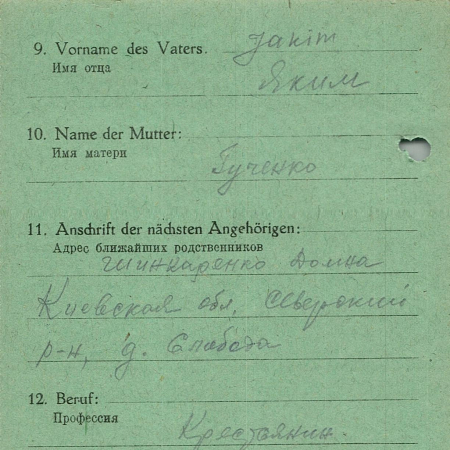 9. Vorname des Vaters. Jakim
Имя отца
Яким
10. Name der Mutter:
Имя матери
Гученко
11. Anschrift der nächsten Angehörigen:
Адрес ближайших родственников
Шинкаренко Домна
Киевская обл,
р-н, д. Слабода
12. Beruf:
Профессия
Крестьянин.